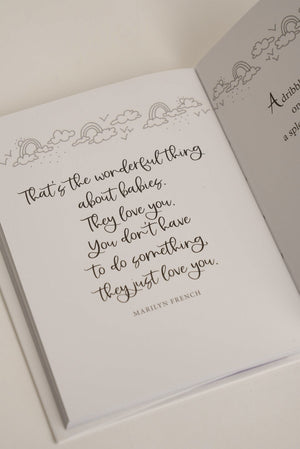 That's the wonderful thing
about babies.
They love you.
You don't have
to do something,
they just love you.
MARILYN FRENCH
A dribbl
a